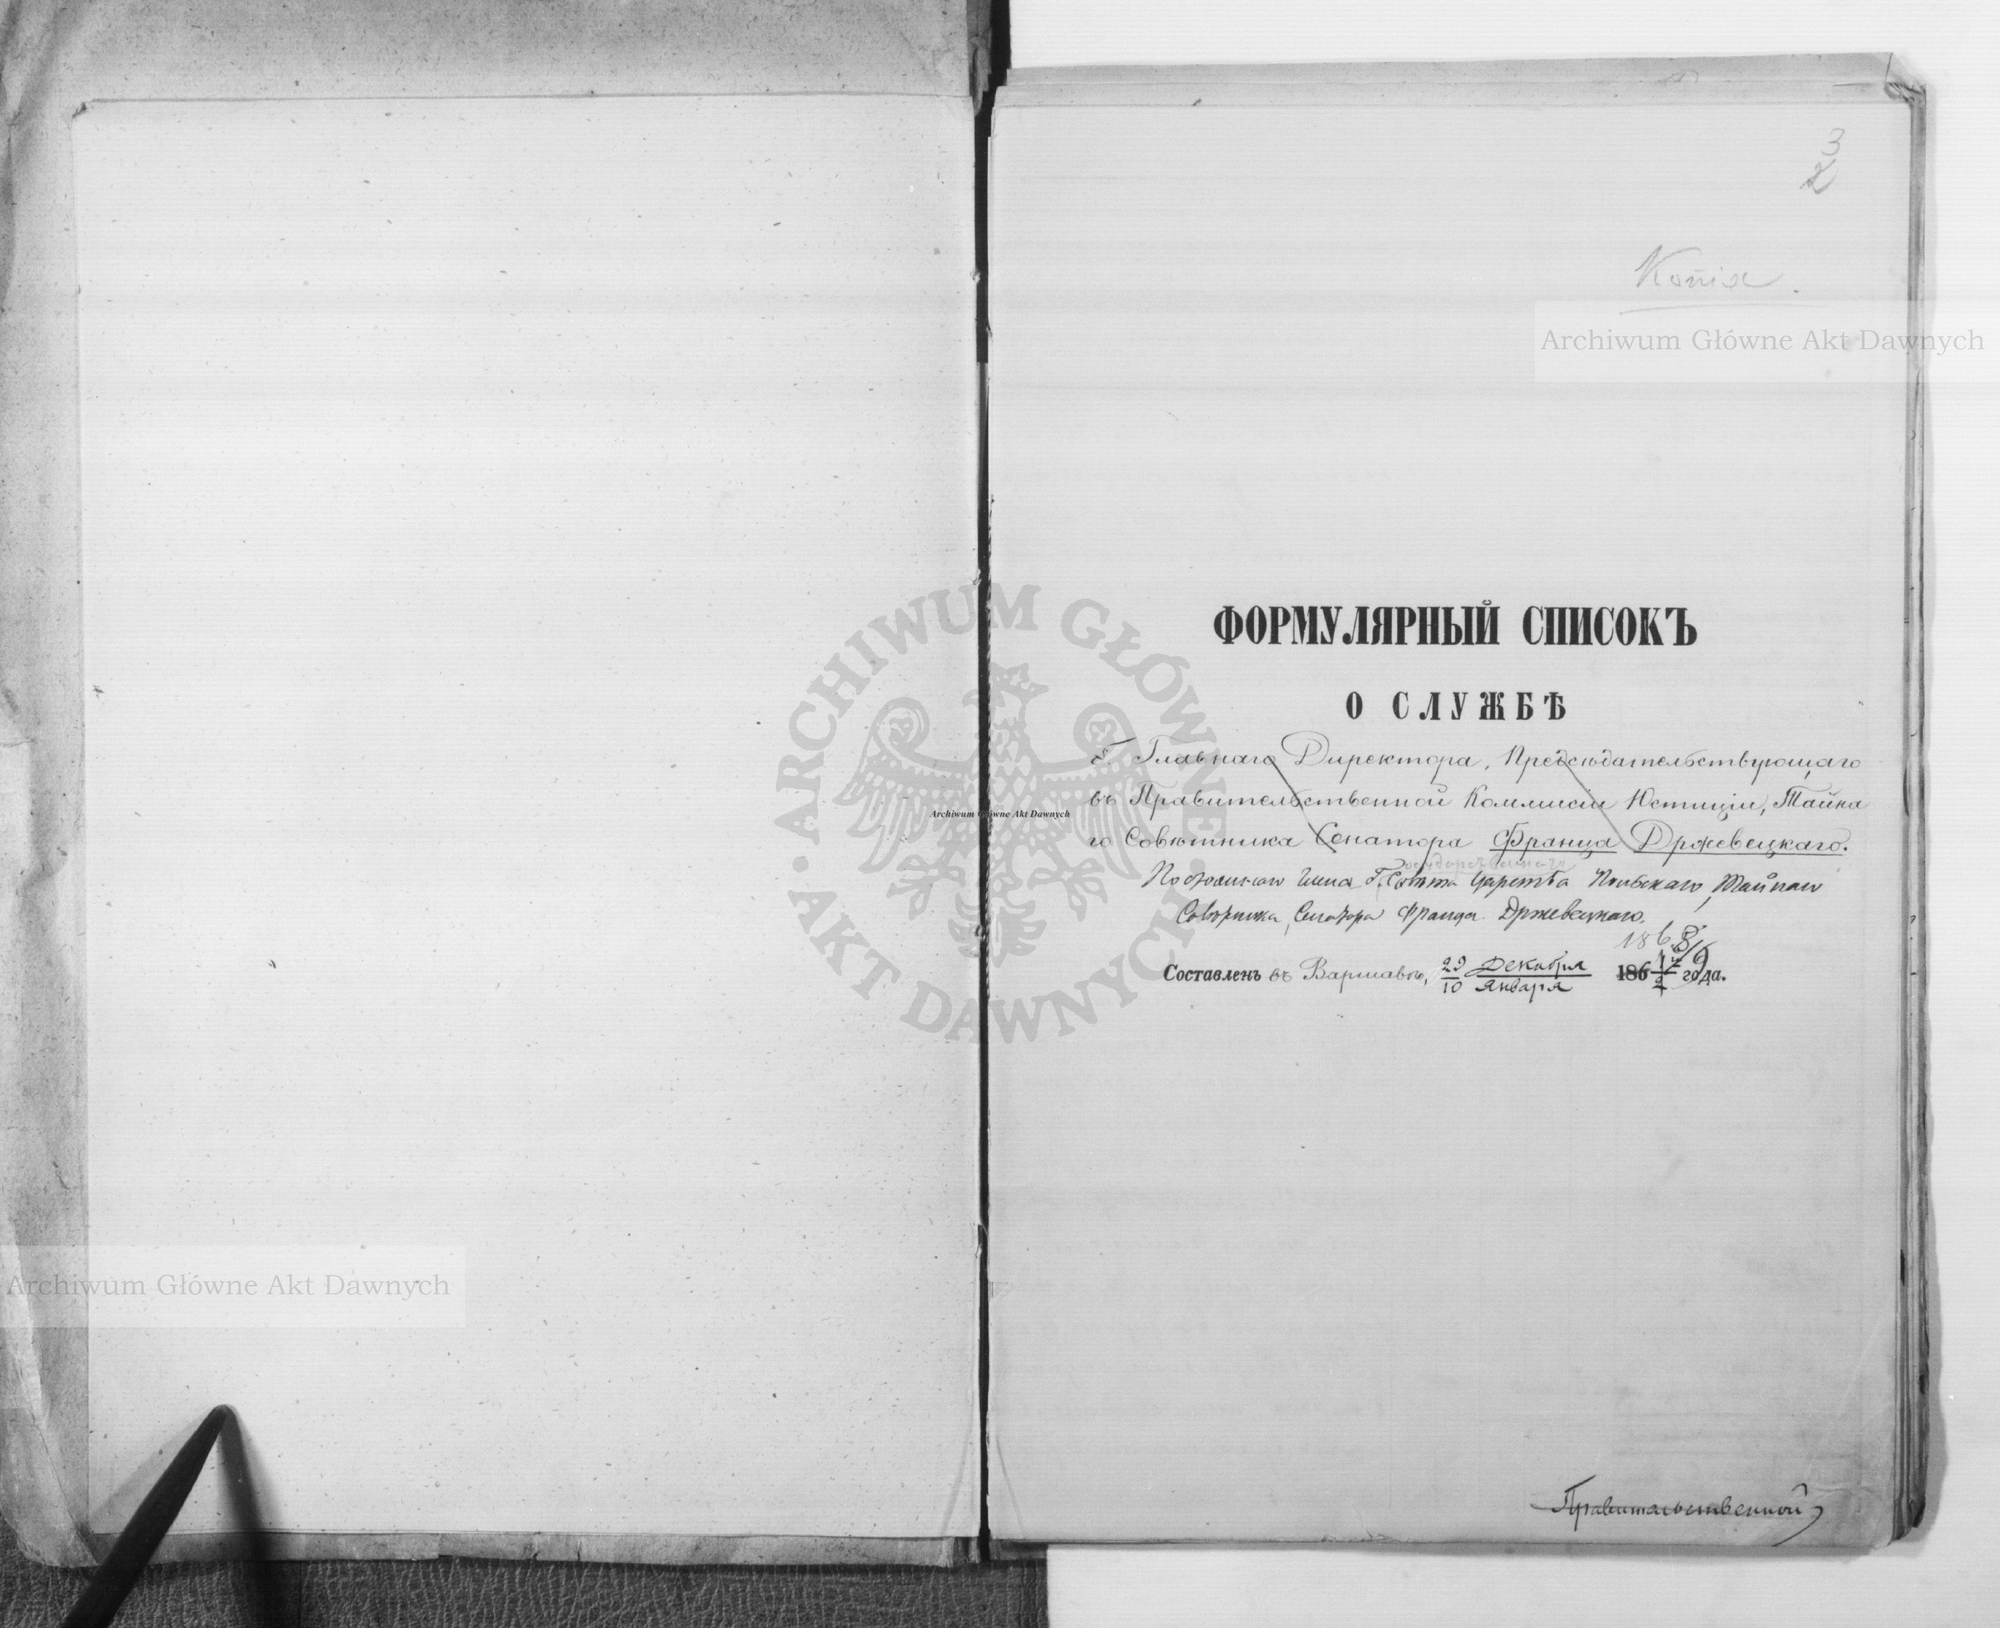 3
2
Копія.
Archiwum Główne Akt Dawnych
ФОРМУЛЯРНЫЙ СПИСОКЪ
О СЛУЖБѢ
б. Главнаго Директора, Предсѣдательствующаго
въ Правительственной Коммисіи Юстиціи, Тайна
го Совѣтника Сенатора Франца Држевецкаго.
Государственнаго
Постояннаго Члена Г. Совѣта Царства Польскаго, Тайнаго
Совѣтника, Сенатора Франца Држевецкаго.
1868/9
Составленъ въ Варшавѣ, 29/10 Декабря/Января 186 1/2 года.
Правительственной
ARCHIWUM GŁÓWNE AKT DAWNYCH
Archiwum Główne Akt Dawnych
Archiwum Główne Akt Dawnych